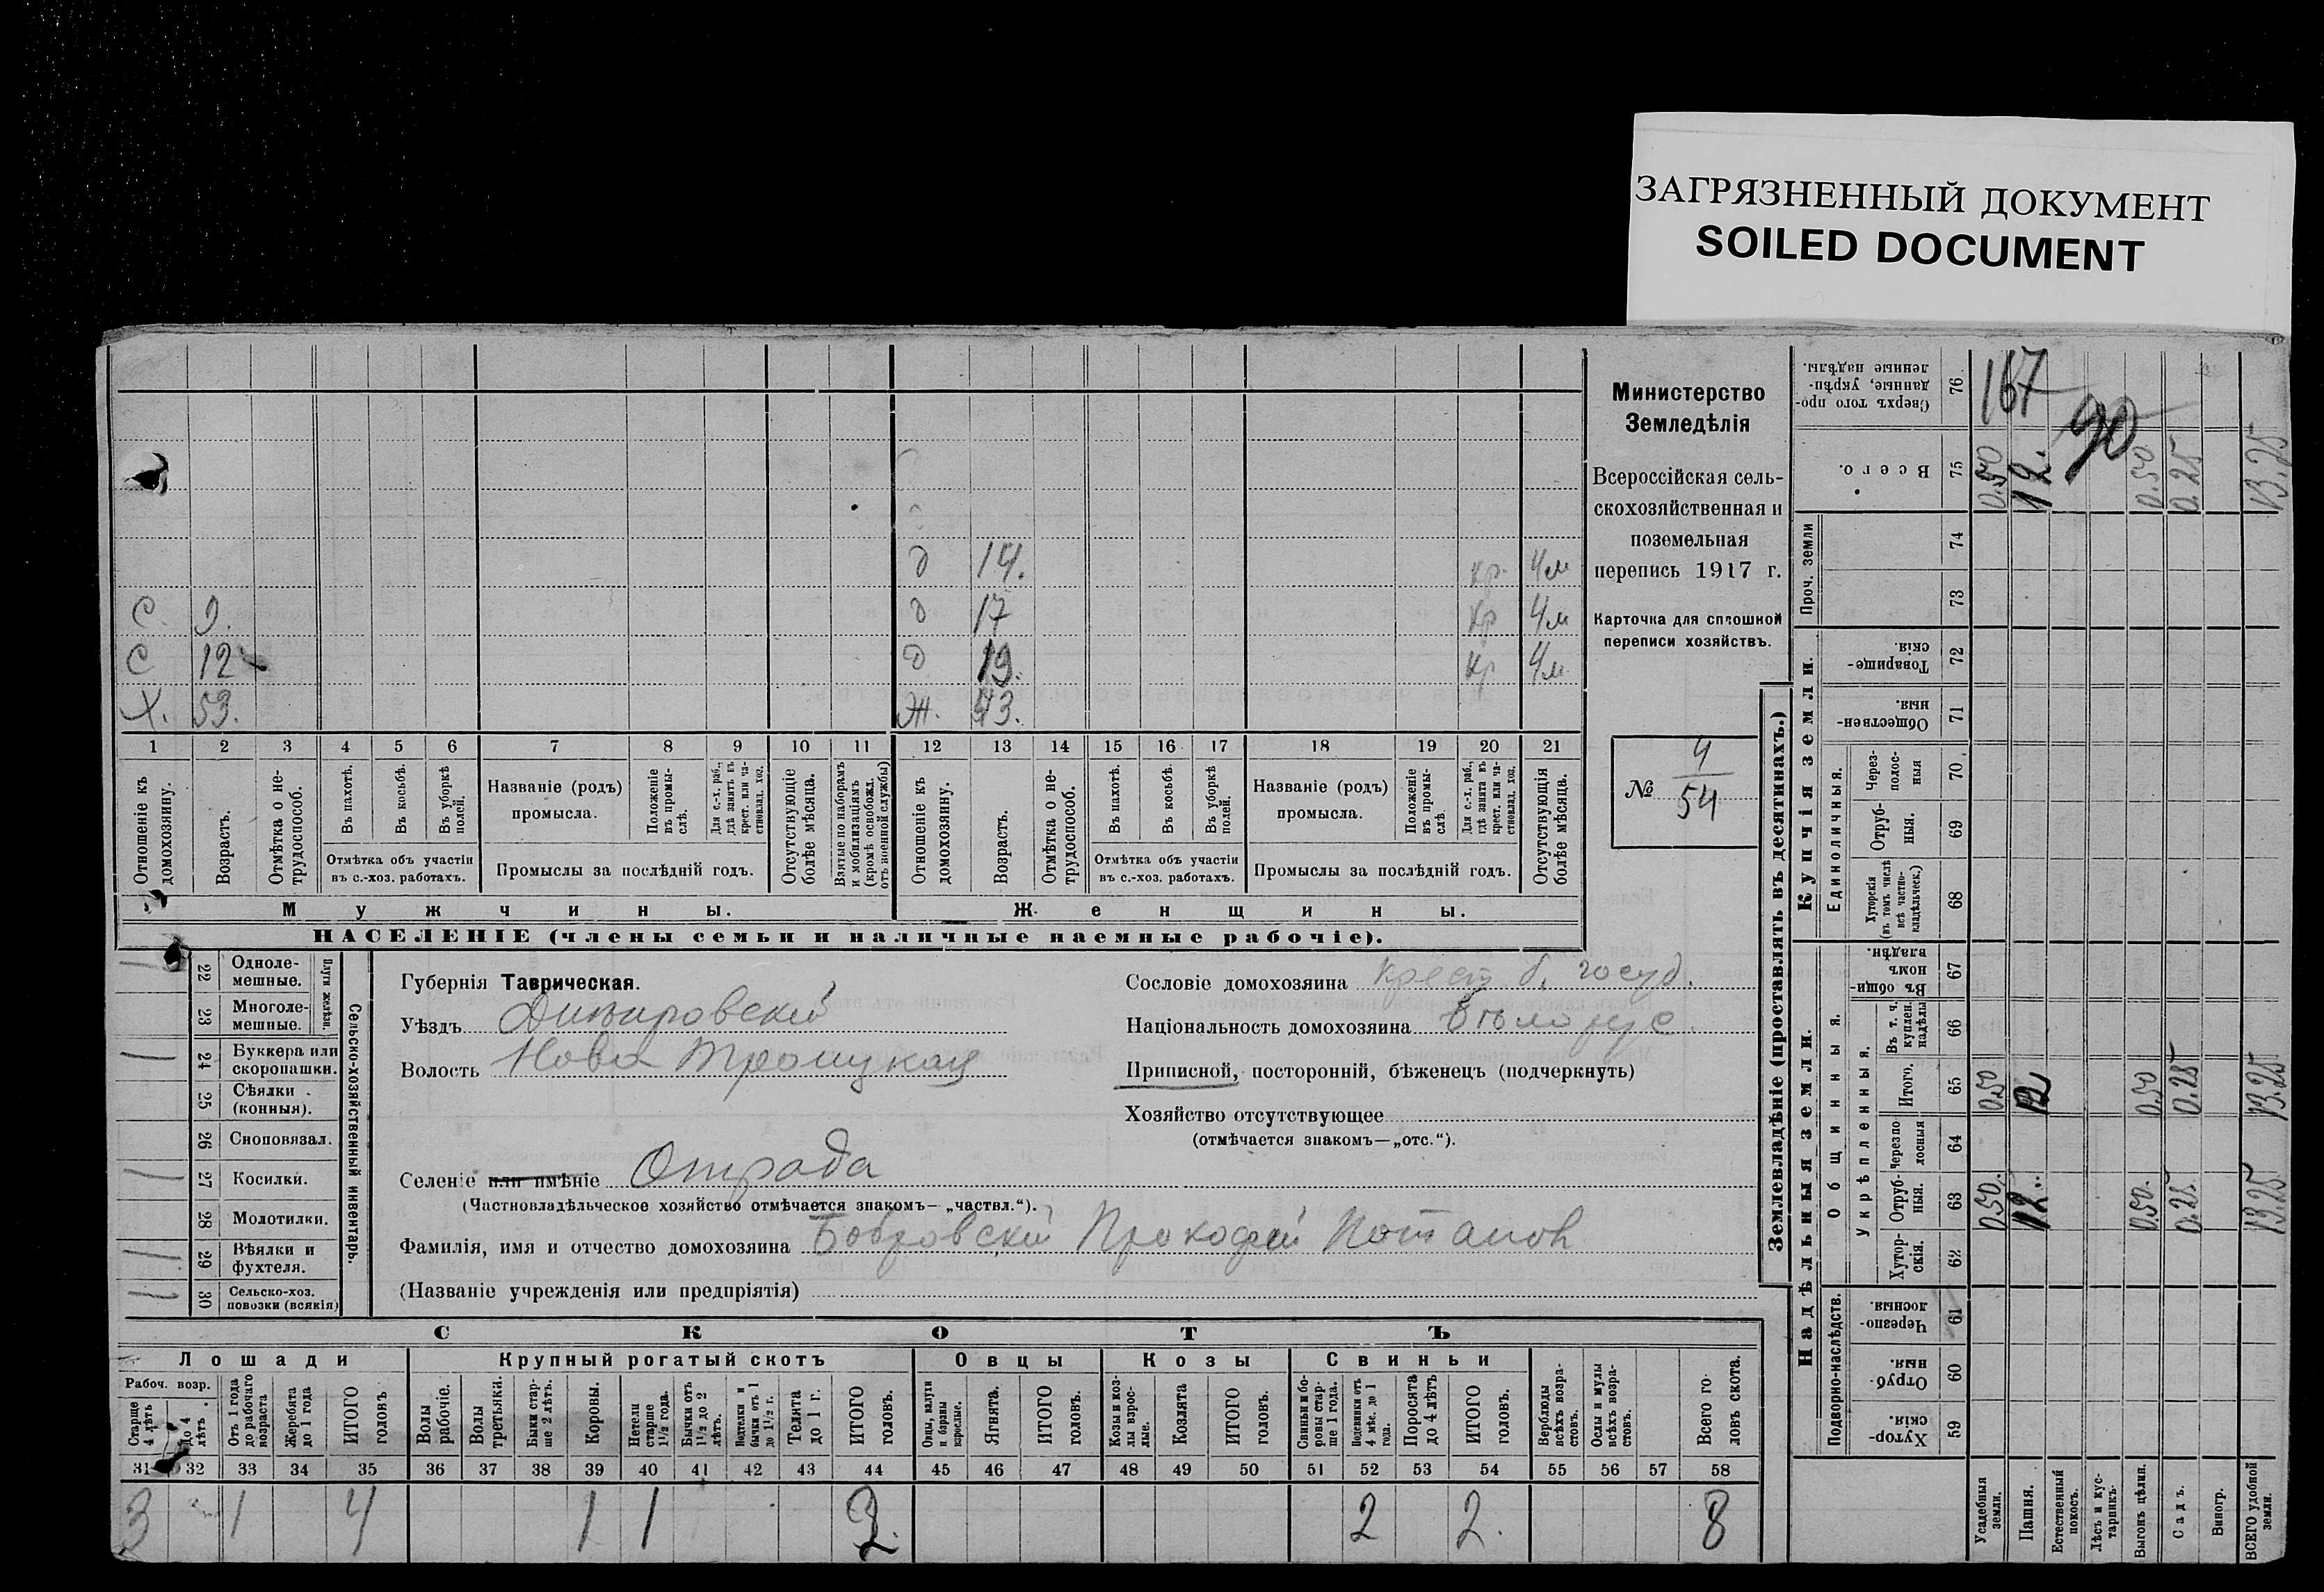 ЗАГРЯЗНЕННЫЙ ДОКУМЕНТ
SOILED DOCUMENT
Министерство
Земледѣлія
Всероссійская сель-
скохозяйственная и
поземельная
перепись 1917 г.
Карточка для сплошной
переписи хозяйствъ.
№ 4
54
д 14. кр. 4м
С. 9. д 17 кр 4м
С 12 д 19. кр 4м
Х. 53. Ж. 43.
1 2 3 4 5 6 7 8 9 10 11 12 13 14 15 16 17 18 19 20 21
Отношеніе къ домохозяину.
Возрастъ.
Отмѣтка о не-трудоспособ.
Въ пахотѣ.
Въ косьбѣ.
Въ уборкѣ полей.
Отмѣтка объ участіи
въ с.-хоз. работахъ.
Названіе (родъ)
промысла.
Положеніе въ промы-слѣ.
Для с.-х. раб., гдѣ занятъ въ крест. или ча-стновлад. хоз.
Промыслы за послѣдній годъ.
Отсутствующіе болѣе мѣсяца.
Взятые по наборамъ и мобилизаціямъ (кромѣ освобожд. отъ военной службы)
Отношеніе къ домохозяину.
Возрастъ.
Отмѣтка о не-трудоспособ.
Въ пахотѣ.
Въ косьбѣ.
Въ уборкѣ полей.
Отмѣтка объ участіи
въ с.-хоз. работахъ.
Названіе (родъ)
промысла.
Положеніе въ промы-слѣ.
Для с.-х. раб., гдѣ занята въ крест. или ча-стновлад. хоз.
Промыслы за послѣдній годъ.
Отсутствующія болѣе мѣсяца.
Мужчины. Женщины.
НАСЕЛЕНІЕ (члены семьи и наличные наемные рабочіе).
22 Одноле-мешные.
23 Многоле-мешные.
Плуги желѣзн.
24 Буккера или скоропашки.
25 Сѣялки (конныя).
26 Сноповязал.
27 Косилки.
28 Молотилки.
29 Вѣялки и фухтеля.
30 Сельско-хоз. повозки (всякія)
Сельско-хозяйственный инвентарь.
Губернія Таврическая.
Уѣздъ Днѣпровскій
Волость Ново Троицкая
Селеніе или имѣніе Отрада
(Частновладѣльческое хозяйство отмѣчается знакомъ— „частвл.“).
Фамилія, имя и отчество домохозяина Бобровскій Прокофій Потапов
(Названіе учрежденія или предпріятія)
Сословіе домохозяина крест б. госуд.
Національность домохозяина Бѣлорус
Приписной, посторонній, бѣженецъ (подчеркнуть)
Хозяйство отсутствующее
(отмѣчается знакомъ—„отс.“).
СКОТЪ
Лошади Крупный рогатый скотъ Овцы Козы Свиньи
Рабоч. возр.
Старше 4 лѣтъ
до 4 лѣтъ
Отъ 1 года до рабочаго возраста
Жеребята до 1 года
ИТОГО головъ
Волы рабочіе.
Волы третьяки.
Быки стар-ше 2 лѣтъ.
Коровы.
Нетели старше 1½ года.
Бычки отъ 1½ до 2 лѣтъ.
Подтелки и бычки отъ 1 до 1½ г.
Телята до 1 г.
ИТОГО головъ.
Овцы, валухи и бараны взрослые.
Ягнята.
ИТОГО головъ.
Козы и коз-лы взрос-лые.
Козлята
ИТОГО головъ.
Свиньи и бо-ровы стар-ше 1 года.
Подсвинки отъ 4 мѣс. до 1 года.
Поросята до 4 лѣтъ
ИТОГО головъ.
Верблюды всѣхъ возра-стовъ.
Ослы и мулы всѣхъ возра-стовъ.
Всего го-ловъ скота.
31 32 33 34 35 36 37 38 39 40 41 42 43 44 45 46 47 48 49 50 51 52 53 54 55 56 57 58
3 1 4 1 1 2. 2 2. 8
Землевладѣніе (проставлять въ десятинахъ.)
Купчія земли.
Надѣльныя земли.
Сверхъ того про-данные, укрѣп-ленные надѣлы. 76 167
90
Всего. 75 0.50 12. 0.50 0.25 13.25
Проч. земли 74
73
Товарище-скія. 72
Обществен-ныя. 71
Единоличныя.
Через-полос-ныя 70
Отруб-ныя. 69
Хуторскія (въ томъ числѣ всѣ частно-владѣльческ.) 68
Общинныя.
Въ общи-номъ владѣн. 67
Укрѣпленныя.
Въ т. ч. куплен. надѣлы 66
Итого. 65 0.50 12 0.50 0.25 13.25
Черезпо-лосныя 64
Отруб-ныя. 63 0.50. 12. 0.50. 0.25. 13.25
Хутор-скія. 62
Подворно-наслѣдств.
Черезпо-лосныя. 61
Отруб-ныя. 60
Хутор-скія. 59
Усадебныя земли.
Пашня.
Естественный покосъ.
Лѣсъ и кус-тарникъ.
Выгонъ цѣлин.
Садъ.
Виногр.
ВСЕГО удобной земли.